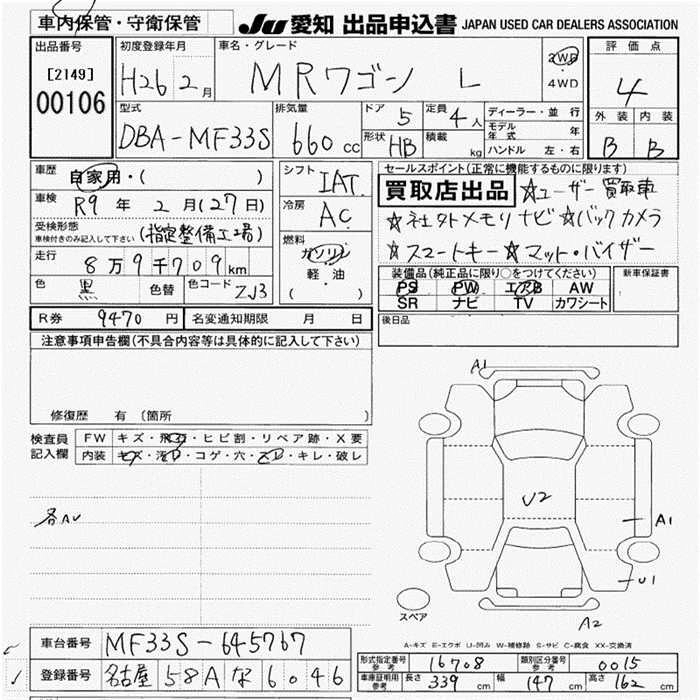 車内保管・守衛保管
JU 愛知 出品申込書 JAPAN USED CAR DEALERS ASSOCIATION
出品番号
[2149]
00106
初度登録年月
H26 2月
車名・グレード
MRワゴン L
2WD
・
4WD
評価点
4
外装 内装
B B
型式
DBA-MF33S
排気量
660 cc
ドア 5
形状 HB
定員 4人
積載 kg
ディーラー・並行
モデル年式 年
ハンドル 左・右
車歴
自家用・( )
車検
R9 年 2 月 (27日)
受検形態
車検付きのみ記入して下さい (指定整備工場)
走行
8万9千709km
色 黒 色替 色コード ZJ3
シフト
IAT
冷房
AC
燃料
ガソリン
軽・油
( )
セールスポイント(正常に機能するものに限ります)
買取店出品 ☆ユーザー買取車
☆社外メモリナビ☆バックカメラ
☆スマートキー☆マット・バイザー
装備品(純正品に限り○をつけてください)
PS PW エアB AW
SR ナビ TV カワシート
新車保証書
R券 9470 円 名変通知期限 月 日
後日品
注意事項申告欄(不具合内容等は具体的に記入して下さい)
修復歴 有(箇所 )
検査員記入欄
FW キズ・飛石・ヒビ割・リペア跡・X要
内装 キズ・汚れ・コゲ・穴・スレ・キレ・破レ
各AU
A1
U2
A1
U1
A2
スペア
A-キズ E-エクボ U-凹み W-補修跡 S-サビ C-腐食 XX-交換済
車台番号 MF33S-645767
登録番号 名古屋 58A な 6046
形式指定番号 参考 16708 類別区分番号 参考 0015
車庫証明用 参考 長さ 339 cm 幅 147 cm 高さ 162 cm